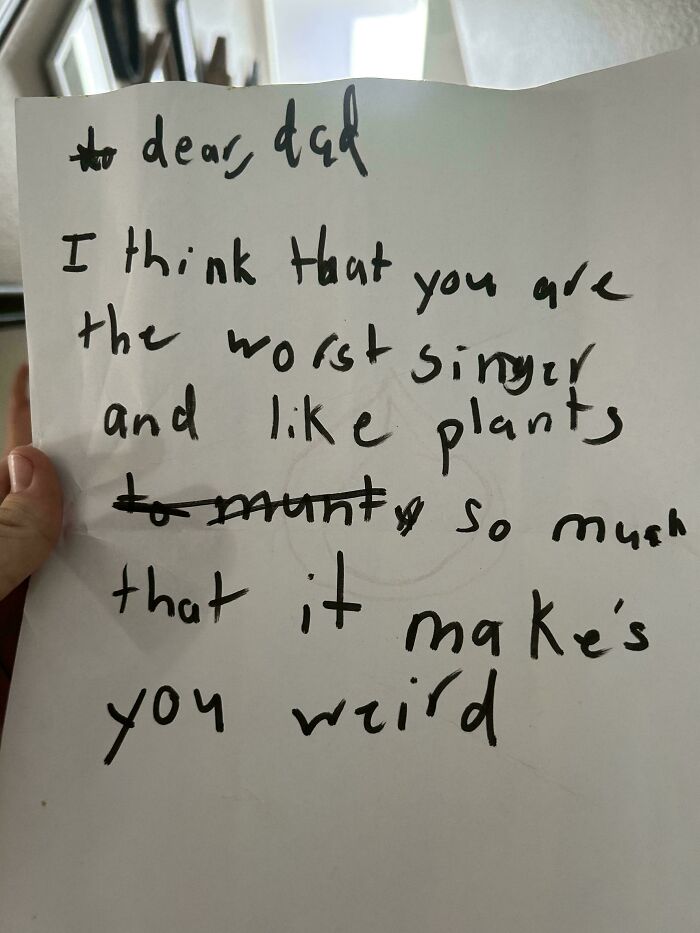 to dear, dad
I think that you are
the worst singer
and like plants
to munt so much
that it make's
you weird